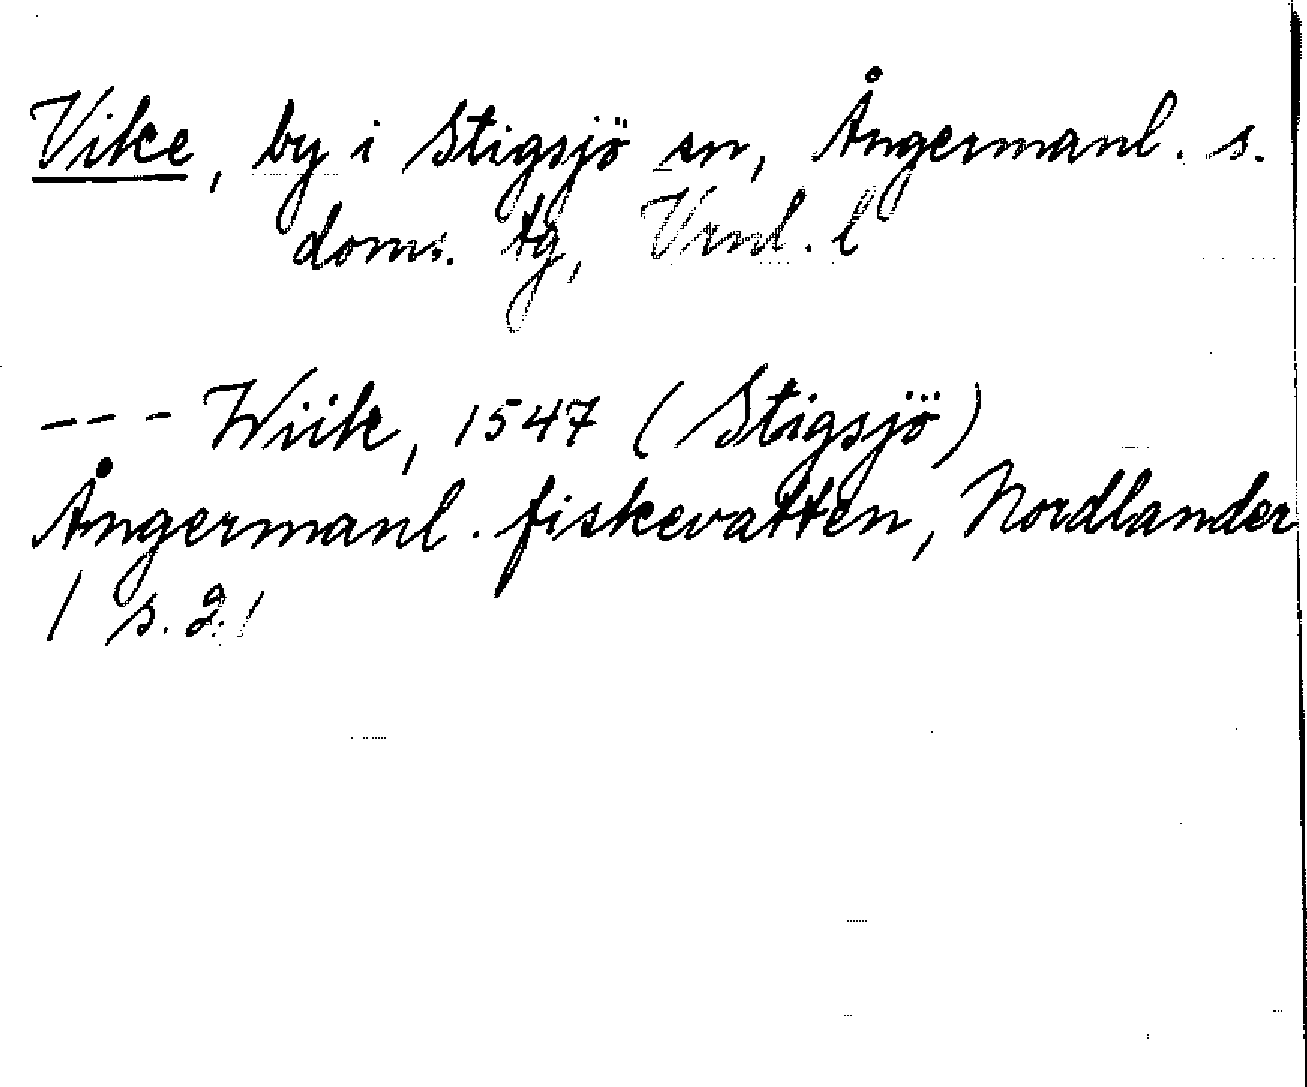 Vike, by i Stigsjö sn, Ångermanl. s.
doms. tg, Vrnl. l
--- Wiik, 1547 (Stigsjö)
Ångermanl. fiskevatten, Nordlander
/ s. 2. /